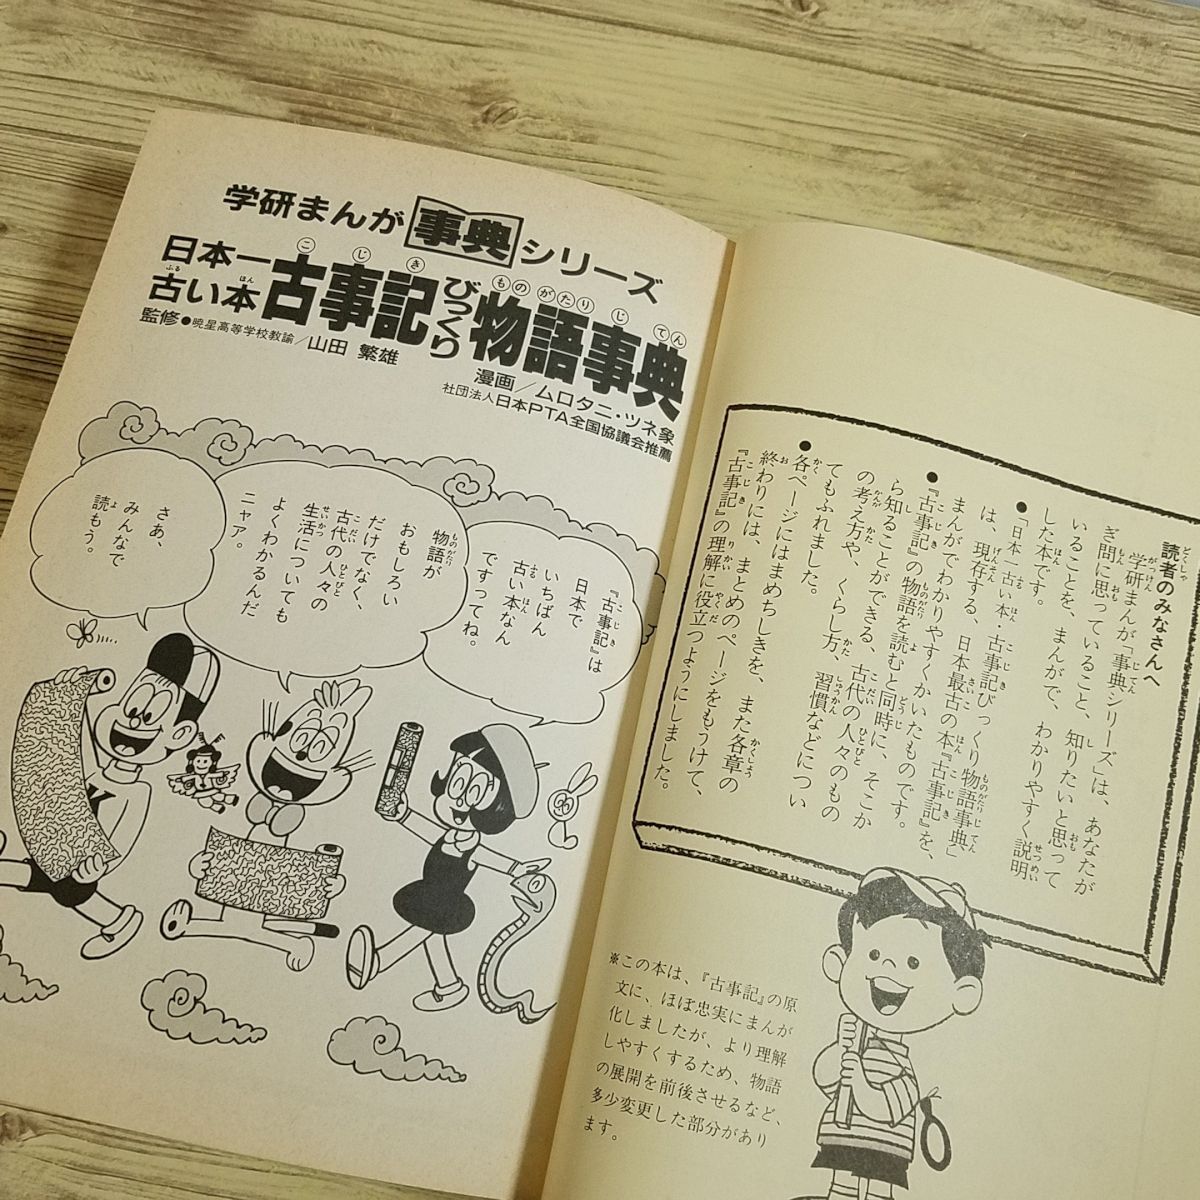 学研まんが事典シリーズ
日本一
古い本
古事記びっくり物語事典
監修●暁星高等学校教諭/山田 繁雄
漫画/ムロタニ・ツネ象
社団法人日本PTA全国協議会推薦
『古事記』は
日本で
いちばん
古い本なん
ですってね。
おもしろい
物語が
だけでなく、
古代の人々の
生活についても
よくわかるんだ
ニャア。
さあ、
みんなで
読もう。
K
読者のみなさんへ
学研まんが「事典シリーズ」は、あなたが
ぎ問に思っていること、知りたいと思って
いることを、まんがで、わかりやすく説明
した本です。
●「日本一古い本・古事記びっくり物語事典」
は、現存する、日本最古の本『古事記』を、
まんがでわかりやすくかいたものです。
●『古事記』の物語を読むと同時に、そこか
ら知ることができる、古代の人々のもの
の考え方や、くらし方、習慣などについ
てもふれました。
●各ページにはまめちしきを、また各章の
終わりには、まとめのページをもうけて、
『古事記』の理解に役立つようにしました。
※この本は、『古事記』の原
文に、ほぼ忠実にまんが
化しましたが、より理解
しやすくするため、物語
の展開を前後させるなど、
多少変更した部分があり
ます。